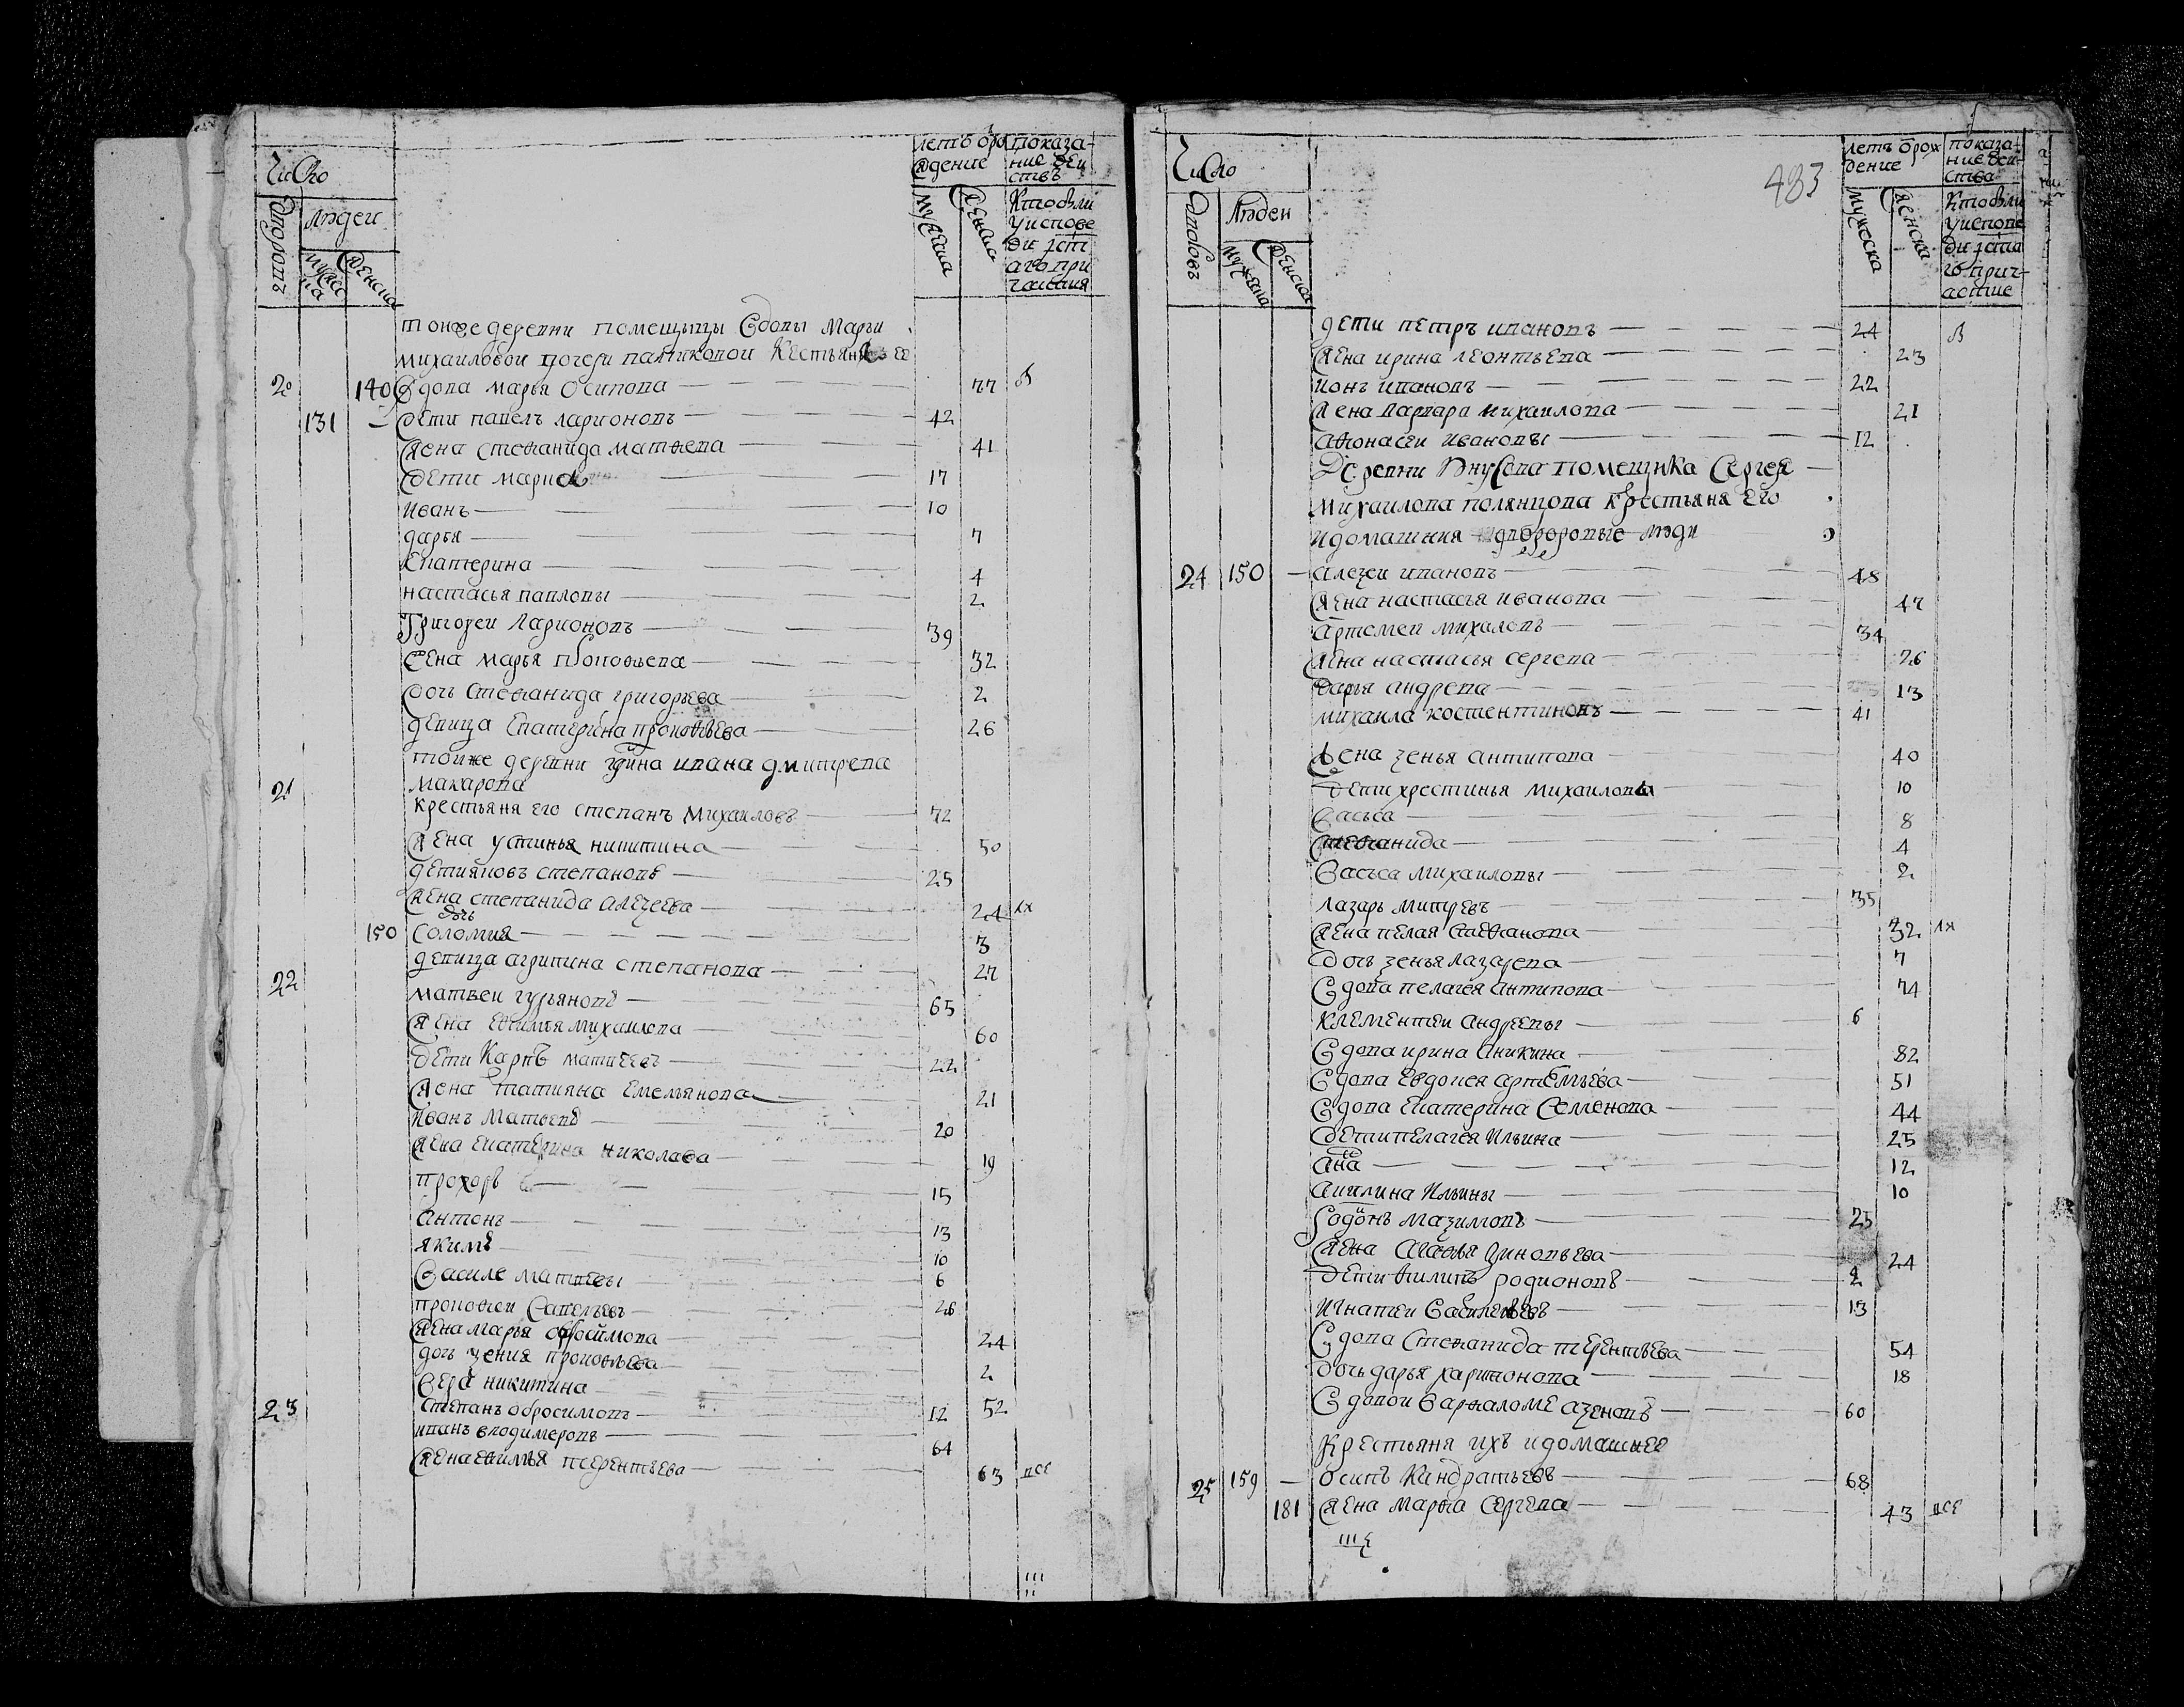 Число
Дворовъ
Людеи
мужеска
женска
летъ о рождение
мужеска
женска
показание деиствъ
Кто были у исповеди и святаго причастия
тоиже деревни помещицы вдовы Марьи
михаиловои дочери
20 140 вдова марья Осипова 77
131 дети павелъ ларионовъ 42
жена стефанида матфева 41
дети 17
иванъ 10
дарья 7
Екатерина 4
настасья павловы 2
Григореи Ларионовъ 39
жена марья прокофьева 32
дочь Стефанида григорьева 2
девица Екатерина прокофьева 26
тоиже деревни гдина ивана дмитрева
21 макарова
крестьяня его степанъ Михаиловъ 72
жена устинья никитина 50
дети яковъ степановъ 25
жена степанида алезеева 24
дочь
150 Соломия 3
девица агрипина степанова 27
22
матвеи гурьяновъ 65
жена Ефимья михаилова 60
дети Карпъ матвеевъ 22
жена татияна Емельянова 21
иванъ Матвевъ 20
жена Екатерина николаева 19
прохоръ 15
антонъ 13
якимъ 10
Василе матвевы 6
прокофеи Савельевъ 26
жена марья обросимова 24
дочь зения прокофьева 2
Вера никитина 52
23 Степанъ обросимовъ 12
иванъ володимеровъ 64
жена ефимья терентьева 63 все
483
Число
Дворовъ
Людеи
мужеска
женска
летъ о рождение
мужеска
женска
показание деиства
Кто были у исповеди и святаго причастие
дети петръ ивановъ 24 В
жена ирина леонтьева 23
ионъ ивановъ 22
жена варвара михаилова 21
афонасеи ивановы 12
Деревни внукова помещика Сергея
михаилова полянцова крестьяня его
и домашния дворовые люди
24 150 алезеи ивановъ 48
жена настасья иванова 47
артемеи михаловъ 34
жена настасья сергева 26
дарья андрева 13
михаила костентиновъ 41
жена зенья антипова 40
дети хрестинья михаиловы 10
Васьса 8
стефанида 4
Васьса михаиловы 2
лазарь митревъ 35
жена пелая стефанова 32
дочь зенья лазарева 7
вдова пелагея антипова 74
клементеи андреевы 6
вдова ирина аникина 82
вдова евдокея артемьева 51
вдова Екатерина Семенова 44
дети пелагея ильина 25
анна 12
акилина ильины 10
родионъ мазимовъ 25
жена зиновьева 24
дети филипъ родионовъ 2
игнатеи васильевъ 13
вдова Стефанида терентьева 54
дочь дарья харитонова 18
вдовои варфаломе азеновъ 60
крестьяня ихъ и домашнее
25 159 осипъ Кандратьевъ 68
181 жена марфа Сергева 43 все